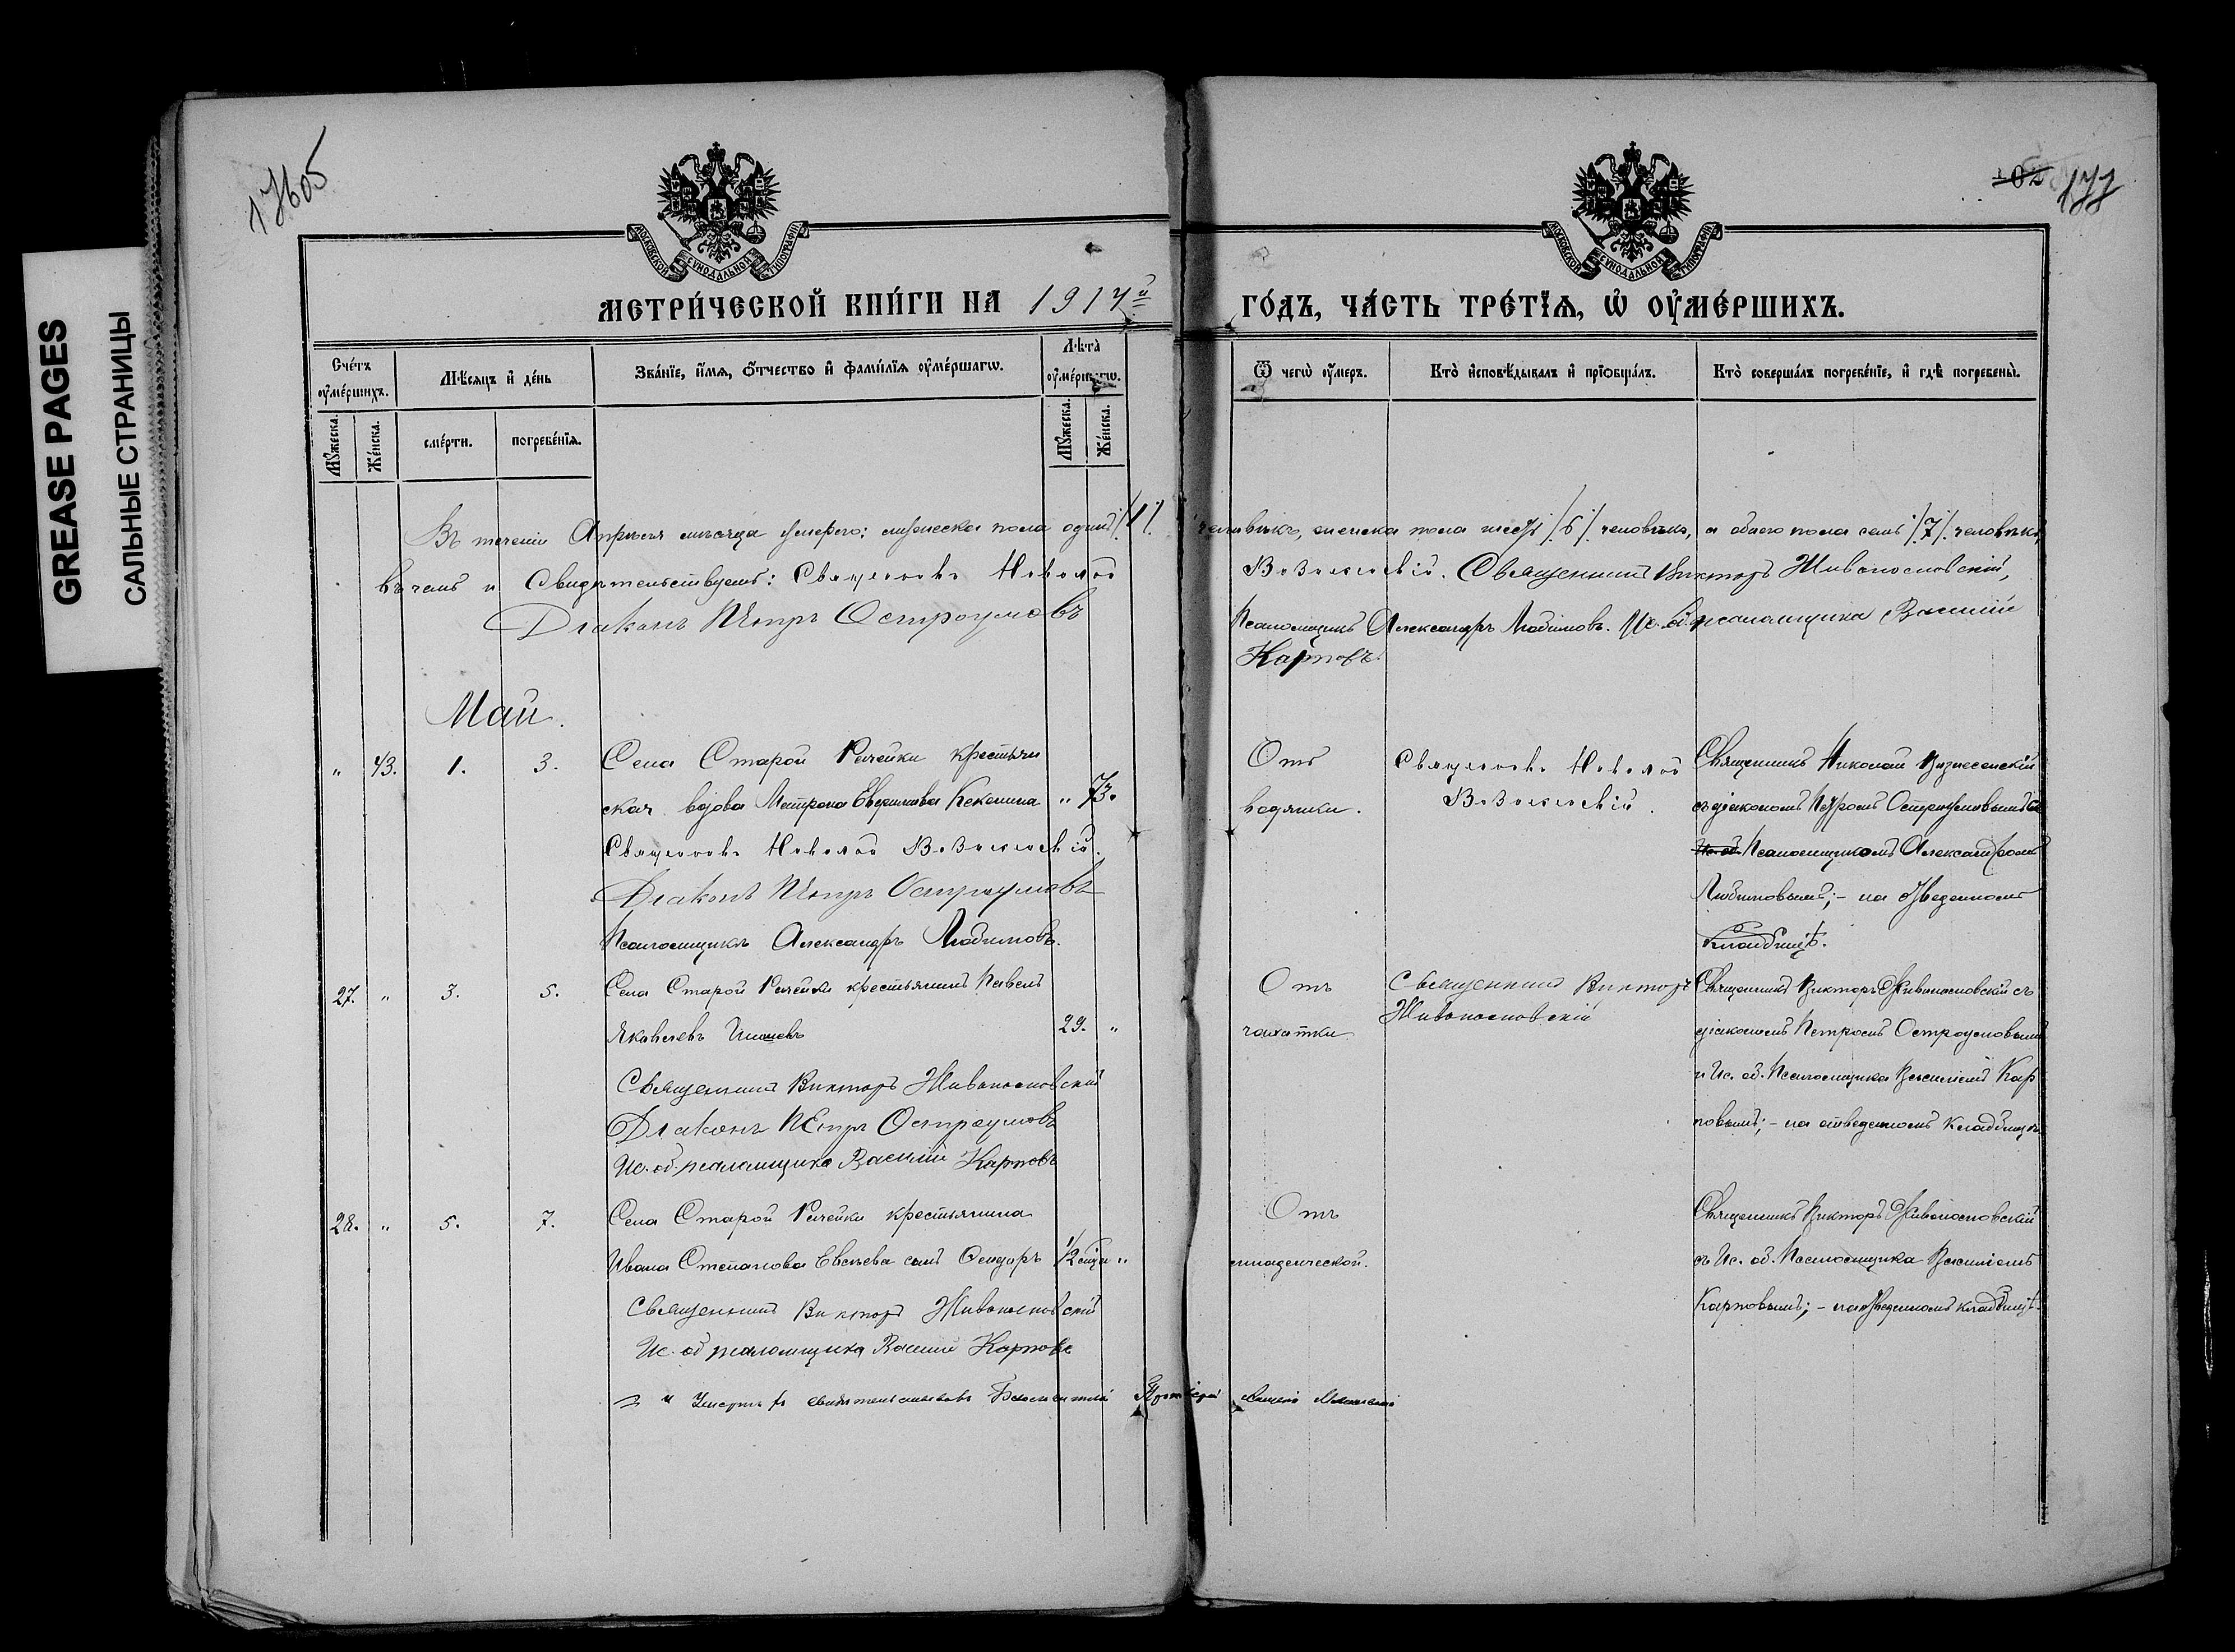 GREASE PAGES
САЛЬНЫЕ СТРАНИЦЫ
177
МОСКОВСКОЙ СѴНОДАЛЬНОЙ ТИПОГРАФІИ
МОСКОВСКОЙ СѴНОДАЛЬНОЙ ТИПОГРАФІИ
МЕТРИ́ЧЕСКОЙ КНИ́ГИ НА 1917й
ГО́ДЪ, ЧА́СТЬ ТРЕ́ТЇѦ, Ѡ҆ ОУ҆МЕ́РШИХЪ.
Сче́тъ оу҆ме́ршихъ.
Мѣ́сѧцъ и҆ де́нь
Зва́нїе, и҆́мѧ, ѻ҆́тчество и҆ фами́лїѧ оу҆ме́ршагѡ.
Лѣ́та оу҆ме́ршагѡ.
Ѿ чегѡ̀ оу҆́меръ.
Кто̀ и҆сповѣ́дывалъ и҆ прїѡбща́лъ.
Кто̀ соверша́лъ погребе́нїе, и҆ гдѣ̀ погребены̀.
Мꙋ́жеска.
Же́нска.
сме́рти.
погребе́нїѧ.
Мꙋ́жеска.
Же́нска.
Въ теченіи Апрѣля мѣсяца умерло: мужеска пола одинъ /1/ человѣкъ, женска пола шесть /6/ человѣкъ, а обоего пола семь /7/ человѣкъ,
въ чемъ и Свидѣтельствуемъ: Священникъ Николай Вознесенскій. Священникъ Викторъ Живоносновскій,
Діаконъ Петръ Остроумовъ Псаломщикъ Александръ Любимовъ. Ис. об. псаломщика Василій
Карповъ.
Май.
" 43. 1. 3. Села Старой Рачейки крестьян
ская вдова Матрона " 73.
Священникъ Николай Вознесенскій.
Діаконъ Петръ Остроумовъ
Псаломщикъ Александръ Любимовъ.
Отъ
водянки.
Священникъ Николай
Вознесенскій.
Священникъ Николай Вознесенскій
съ діакономъ Петромъ Остроумовымъ и
Псаломщикомъ Александромъ
Любимовымъ; - на отведенномъ
кладбищѣ.
27. " 3. 5. Села Старой Рачейки крестьянинъ Павелъ
Яковлевъ 29. "
Священникъ Викторъ Живоносновскій
Діаконъ Петръ Остроумовъ
Ис. об. псаломщика Василій Карповъ
Отъ
чахотки
Священникъ Викторъ
Живоносновскій
Священникъ Викторъ Живоносновскій съ
діакономъ Петромъ Остроумовымъ
и Ис. об. Псаломщика Василіемъ Кар
повымъ; - на отведенномъ кладбищѣ
28. " 5. 7. Села Старой Рачейки крестьянина
Ивана Степанова Евсѣева сынъ Ѳеодоръ 1/2 мѣся "
Священникъ Викторъ Живоносновскій
Ис. об псаломщика Василій Карповъ
Отъ
младенческой.
Священникъ Викторъ Живоносновскій
съ Ис. об. Псаломщика Василіемъ
Карповымъ; - на отведенномъ кладбищѣ
свидѣтельствовалъ Благочинный Протоіерей